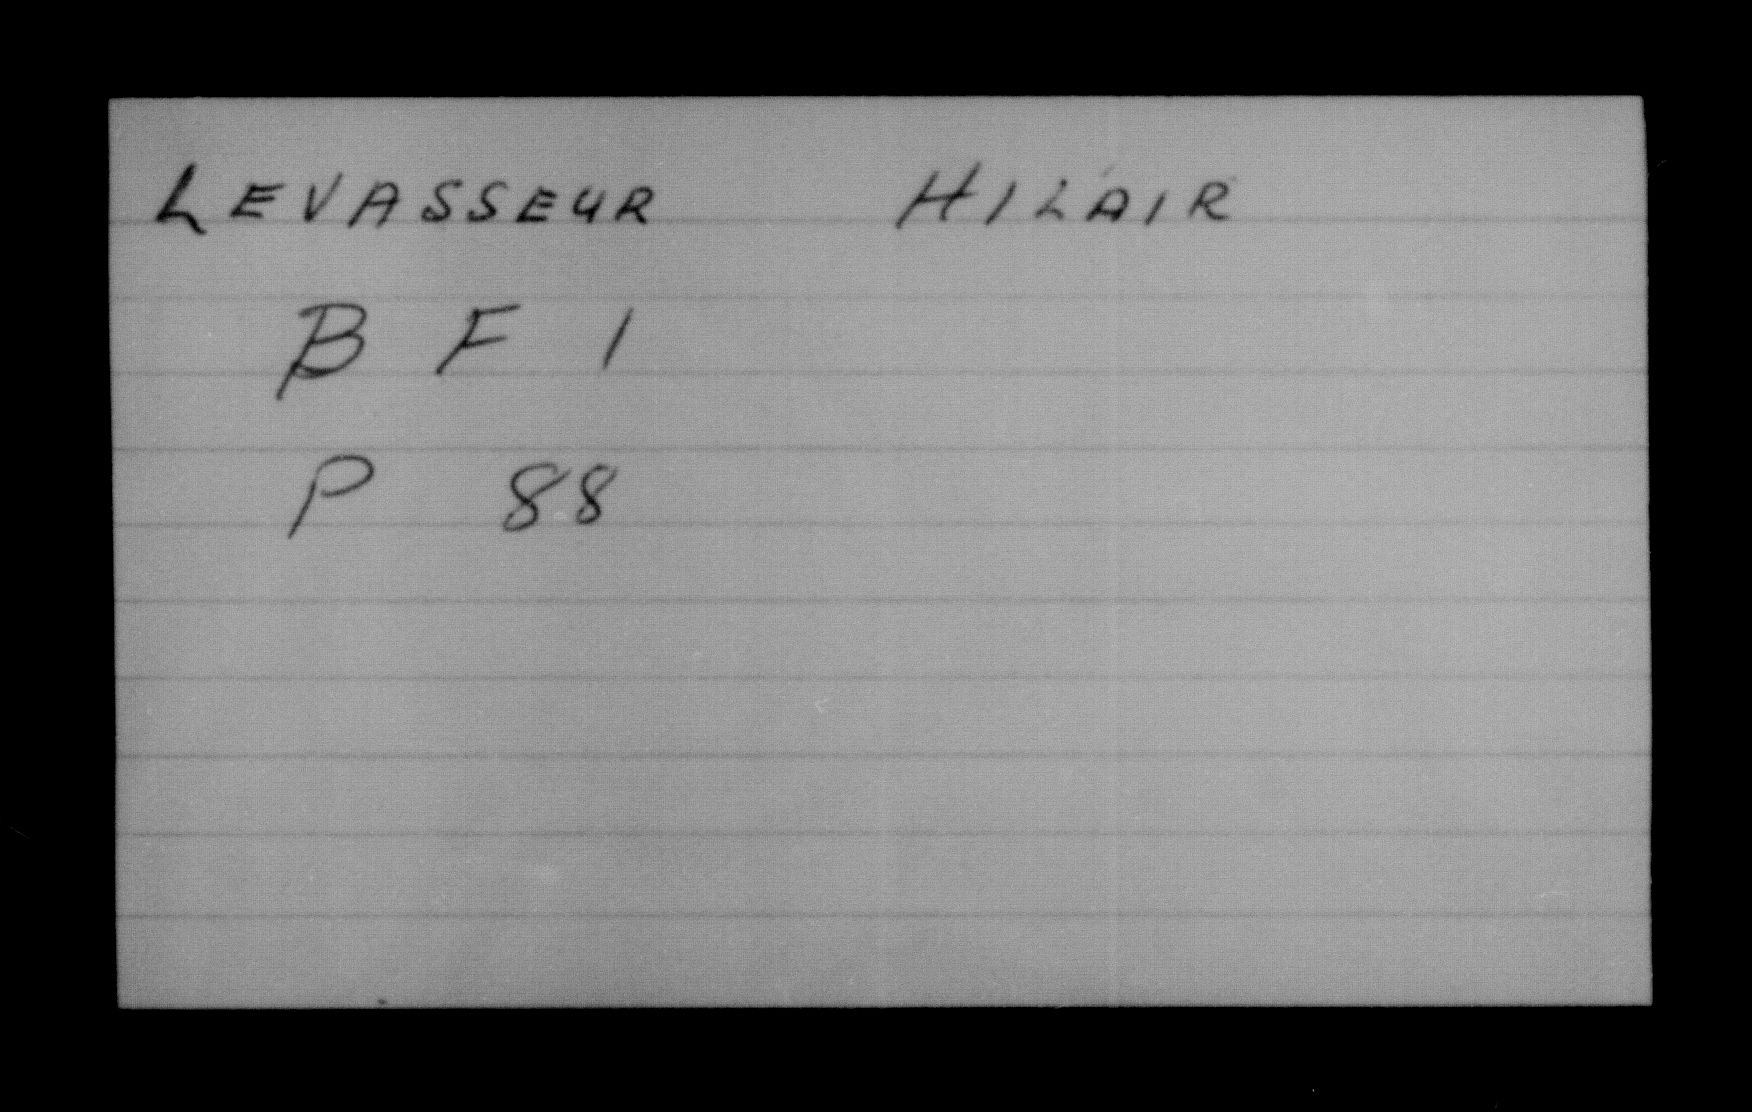 LEVASSEUR HILAIR
B F 1
P 88